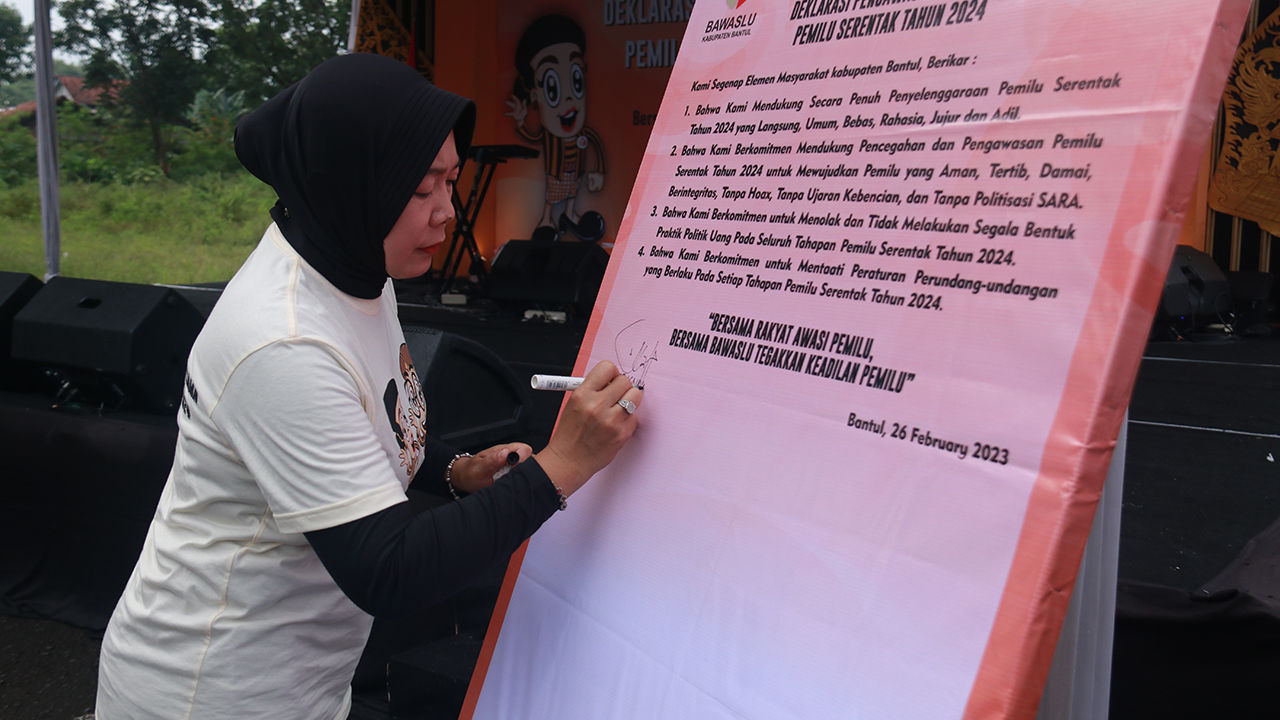 DEKLARASI
PEMIL
BAWASLU
KABUPATEN BANTUL
DEKLARASI
PEMILU SERENTAK TAHUN 2024
Kami Segenap Elemen Masyarakat kabupaten Bantul, Berikar :
1. Bahwa Kami Mendukung Secara Penuh Penyelenggaraan Pemilu Serentak
Tahun 2024 yang Langsung, Umum, Bebas, Rahasia, Jujur dan Adil.
2. Bahwa Kami Berkomitmen Mendukung Pencegahan dan Pengawasan Pemilu
Serentak Tahun 2024 untuk Mewujudkan Pemilu yang Aman, Tertib, Damai,
Berintegritas, Tanpa Hoax, Tanpa Ujaran Kebencian, dan Tanpa Politisasi SARA.
3. Bahwa Kami Berkomitmen untuk Menolak dan Tidak Melakukan Segala Bentuk
Praktik Politik Uang Pada Seluruh Tahapan Pemilu Serentak Tahun 2024.
4. Bahwa Kami Berkomitmen untuk Mentaati Peraturan Perundang-undangan
yang Berlaku Pada Setiap Tahapan Pemilu Serentak Tahun 2024.
"BERSAMA RAKYAT AWASI PEMILU,
BERSAMA BAWASLU TEGAKKAN KEADILAN PEMILU"
Bantul, 26 February 2023